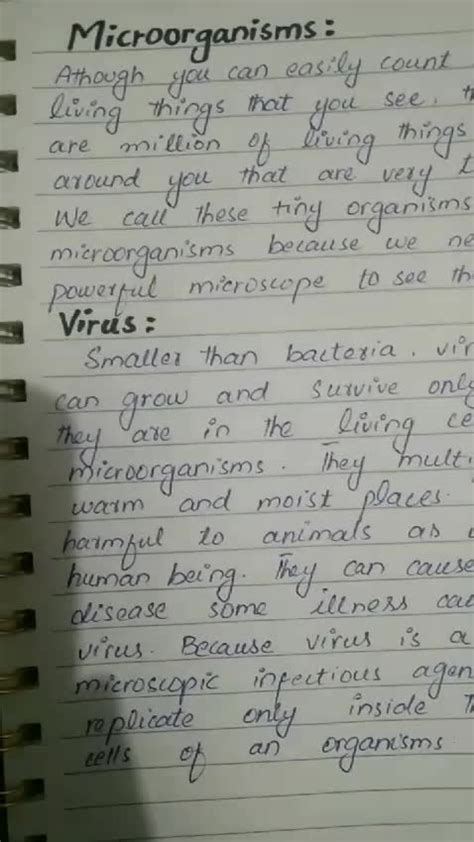 Microorganisms:
Athough you can easily count
living things that you see,
are million of living things
around you that are very
We call these tiny organisms
microorganisms because we
powerful microscope to see
Virus:
Smaller than bacteria,
can grow and survive
they are in the living
microorganisms. They
warm and moist places.
harmful to animals as
human being. They can cause
disease some illness
virus. Because virus is a
microscopic infectious
replicate only inside
cells of an organisms